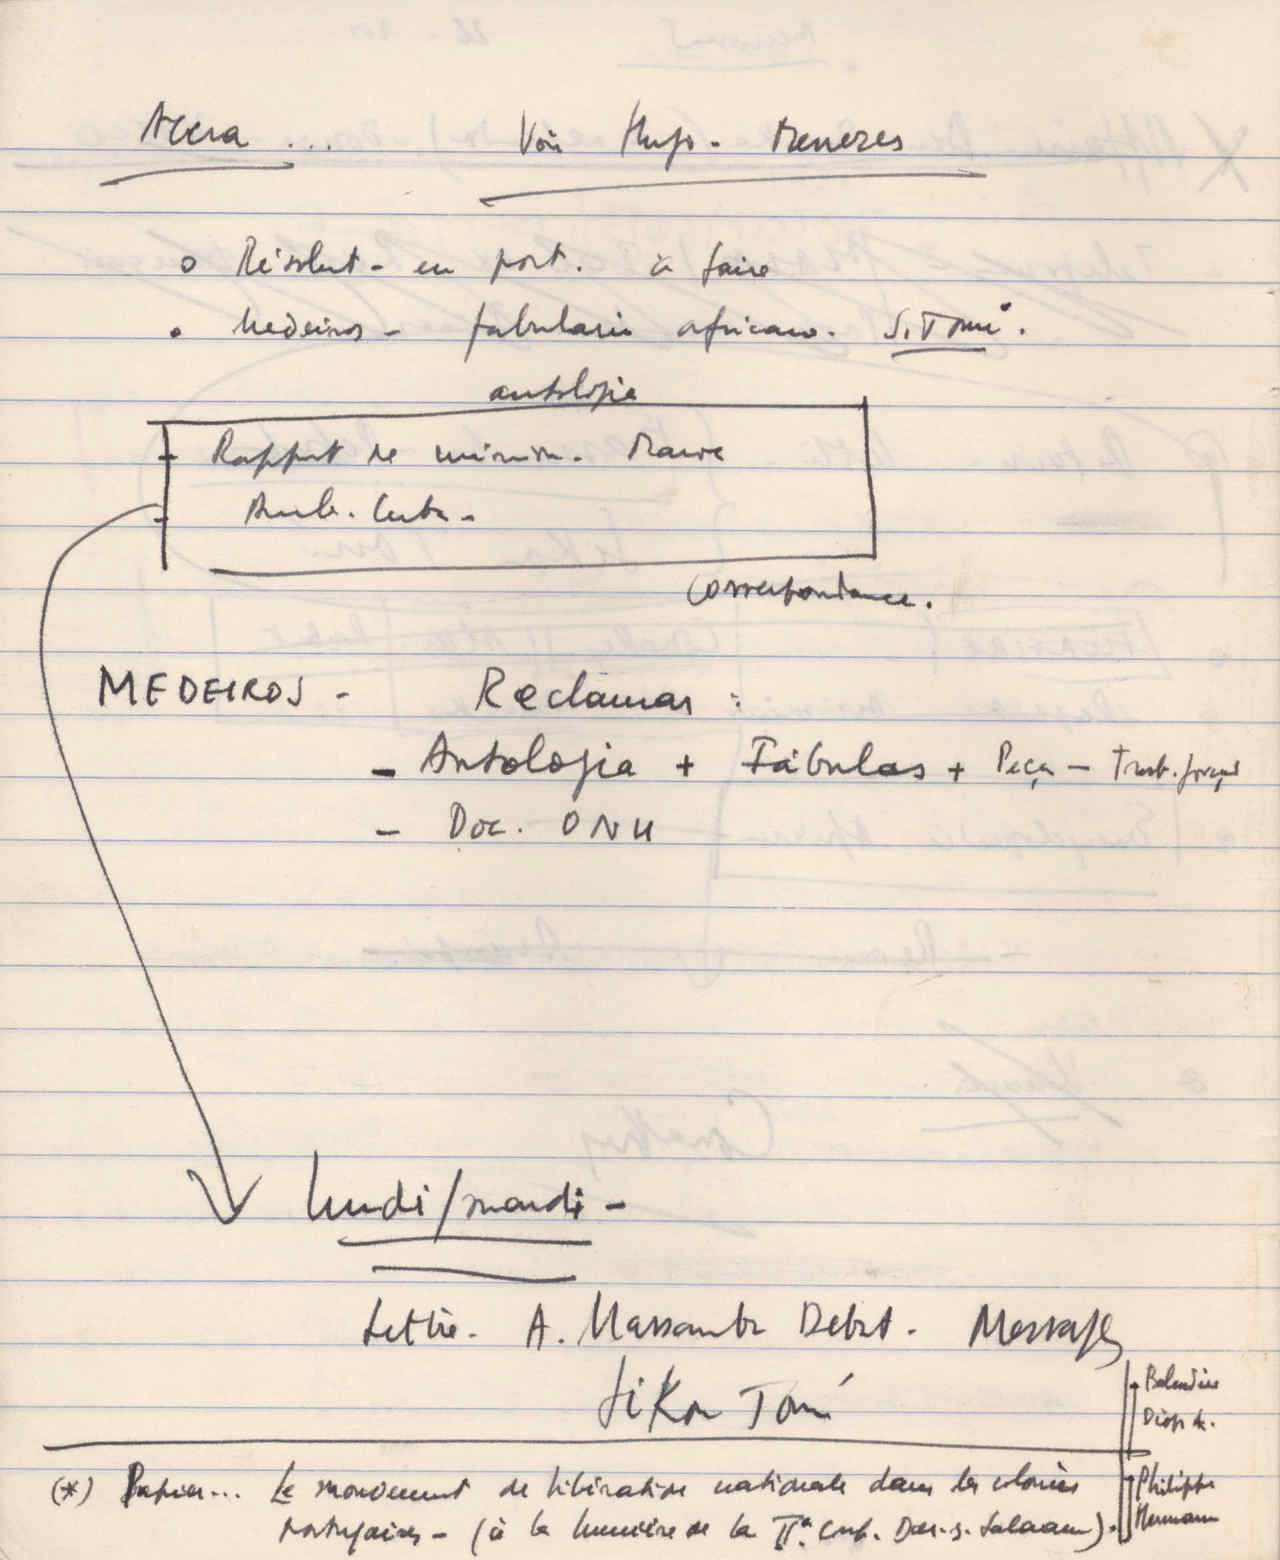 Accra ... Voir Hugo - Menezes
o Résolut - en port. à faire
o Medeiros - fabulario africano. S. Tomé.
antologia
- Rapport de mission. Maroc
- Amb. Cuba -
Correspondance.
MEDEIROS - Reclamar :
- Antologia + Fábulas + Peça - Trab. forçado
- Doc. ONU
lundi/mardi -
Lettre - A. Massamba Debat - Message
Balandier
Diop A.
(*) Papier... Le mouvement de libération nationale dans les colonies
Philippe
portugaises - (à la lumière de la IIª Conf. Dar-s-Salaam).
Hermann